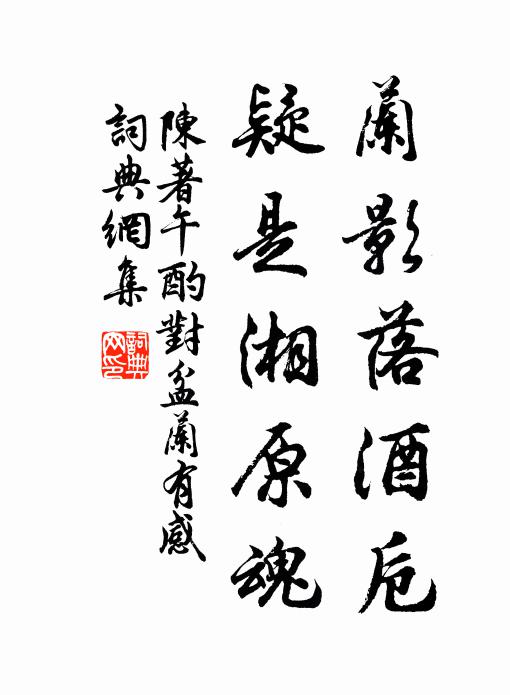 蘭影落酒卮
疑是湘原魂
陳著午酌對盆蘭有感
詞典網集
詞典網印